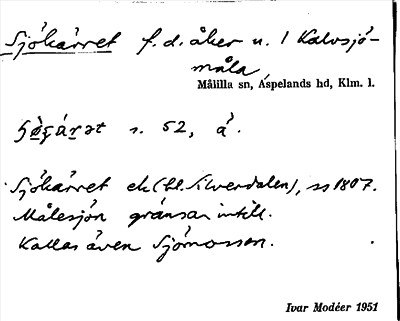 Sjökärret f.d. åker u. 1 Kalvsjö-
måla
Målilla sn, Aspelands hd, Klm. l.
s. 52, å.
Sjökärret ek (tl Silverdalen), ss 1807.
Målesjön gränsar intill.
Kallas även Sjömossen.
Ivar Modéer 1951